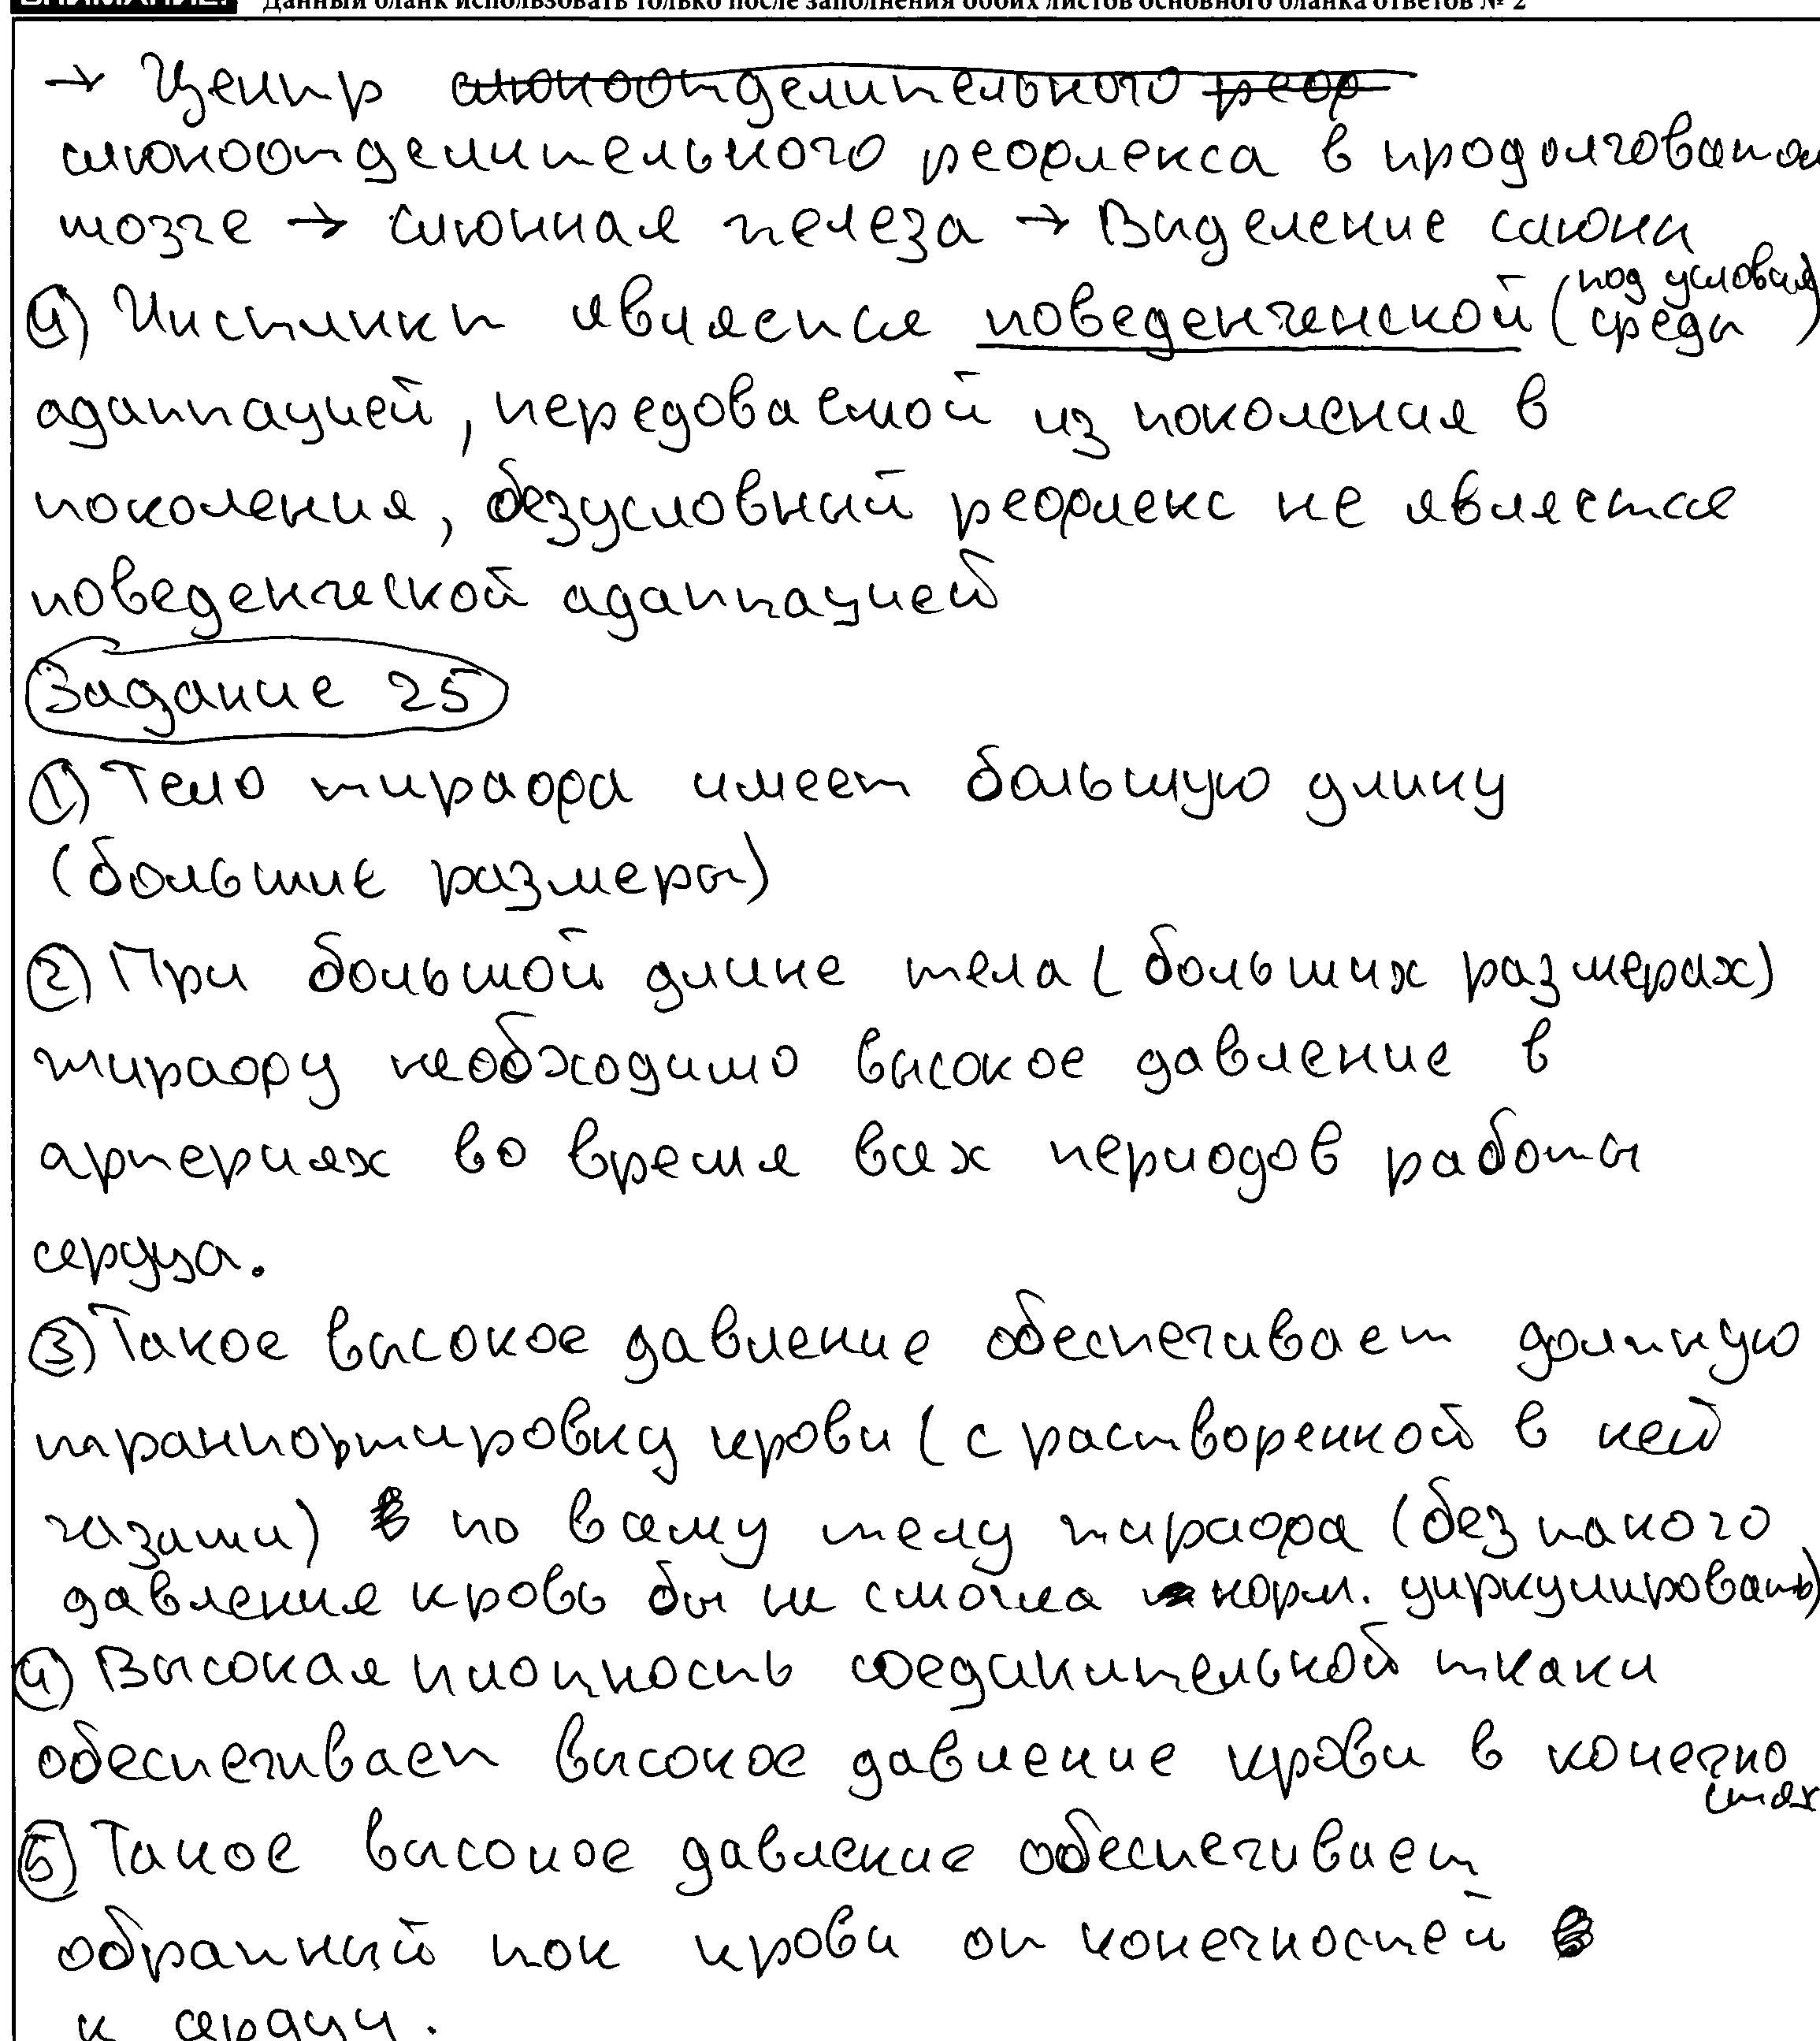 ВНИМАНИЕ! Данный бланк использовать только после заполнения обоих листов основного бланка ответов № 2
→ Центр слюноотделительного реф
слюноотделительного рефлекса в продолговатом
мозге → слюнная железа → Выделение слюны
4) Инстинкт является поведенченской (под условия среды)
адаптацией, передоваемой из поколения в
поколения, безусловный рефлекс не является
поведенческой адаптацией
Задание 25
1) Тело жирафа имеет большую длину
(большие размеры)
2) При большой длине тела (больших размерах)
жирафу необходимо высокое давление в
артериях во время всех периодов работы
сердца.
3) Такое высокое давление обеспечивает должную
транпортировку крови (с растворенной в ней
газами) по всему телу жирафа (без такого
давления кровь бы не смогла норм. циркулировать)
4) Высокая плотность соединительной ткани
обеспечивает высокое давление крови в конечностях
5) Такое высокое давление обеспечивает
обратный ток крови от конечностей
к сердцу.